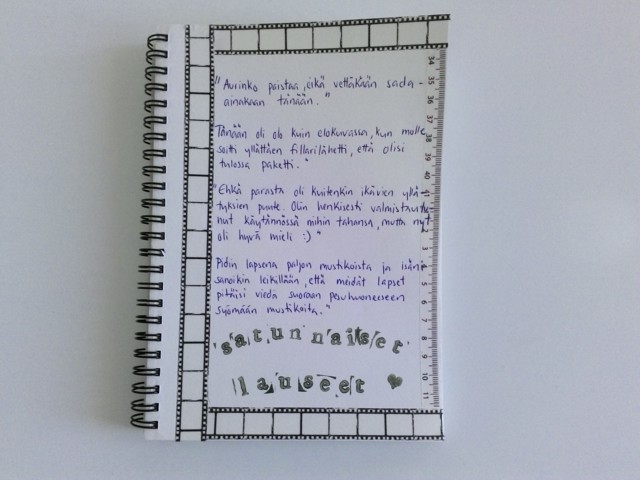 "Aurinko paistaa, eikä vettäkään sada-
ainakaan tänään."
Tänään oli olo kuin elokuvassa, kun mulle
soitti yllättäen fillarilähetti, että olisi
tulossa paketti."
"Ehkä parasta oli kuitenkin ikävien yllä-
tyksien puute. Olin henkisesti valmistautu
nut käytännössä mihin tahansa, mutta nyt
oli hyvä mieli :)"
Pidin lapsena paljon mustikoista ja isäni
sanoikin leikillään, että meidät lapset
pitäisi viedä suoraan pesuhuoneeseen
syömään mustikoita."
satunnaiset
lauseet
34
35
36
37
38
39
40
41
2
3
4
5
6
7
8
9
10
11